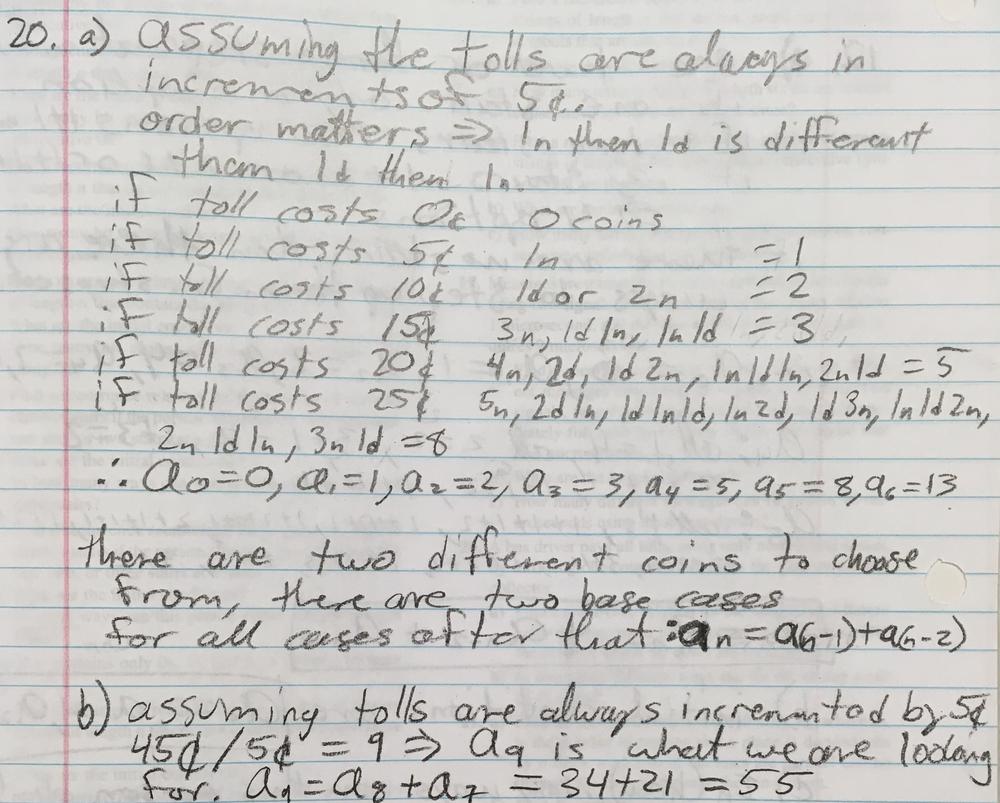 20. a) assuming the tolls are always in
increments of 5¢.
order matters ⇒ 1n then 1d is different
than 1d then 1n.
if toll costs 0¢ 0 coins
if toll costs 5¢ 1n = 1
if toll costs 10¢ 1d or 2n = 2
if toll costs 15¢ 3n, 1d1n, 1n1d = 3
if toll costs 20¢ 4n, 2d, 1d2n, 1n1d1n, 2n1d = 5
if toll costs 25¢ 5n, 2d1n, 1d1n1d, 1n2d, 1d3n, 1n1d2n,
2n1d1n, 3n1d = 8
∴ a0=0, a1=1, a2=2, a3=3, a4=5, a5=8, a6=13
there are two different coins to choose
from, there are two base cases
for all cases after that: an = a(n-1)+a(n-2)
b) assuming tolls are always incremented by 5¢
45¢/5¢ = 9 ⇒ a9 is what we are looking
for. a9 = a8 + a7 = 34+21 = 55